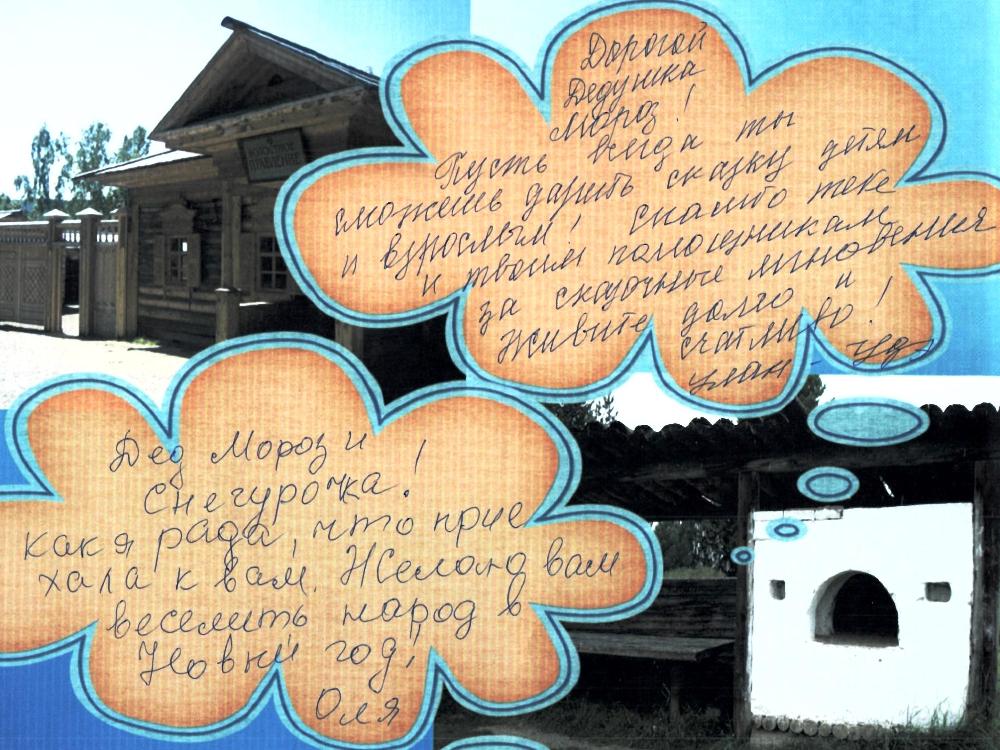 ВОЛОСТНОЕ
ПРАВЛЕНИЕ
Дорогой
Дедушка
Мороз!
Пусть всегда ты
сможешь дарить сказку детям
и взрослым! Спасибо тебе
и твоим помощникам
за сказочные мгновения
Живите долго и
счатливо!
улан - удэ
Дед Мороз и
Снегурочка!
как я рада, что прие
хала к вам. Желаю вам
веселить народ в
Новый год!
Оля